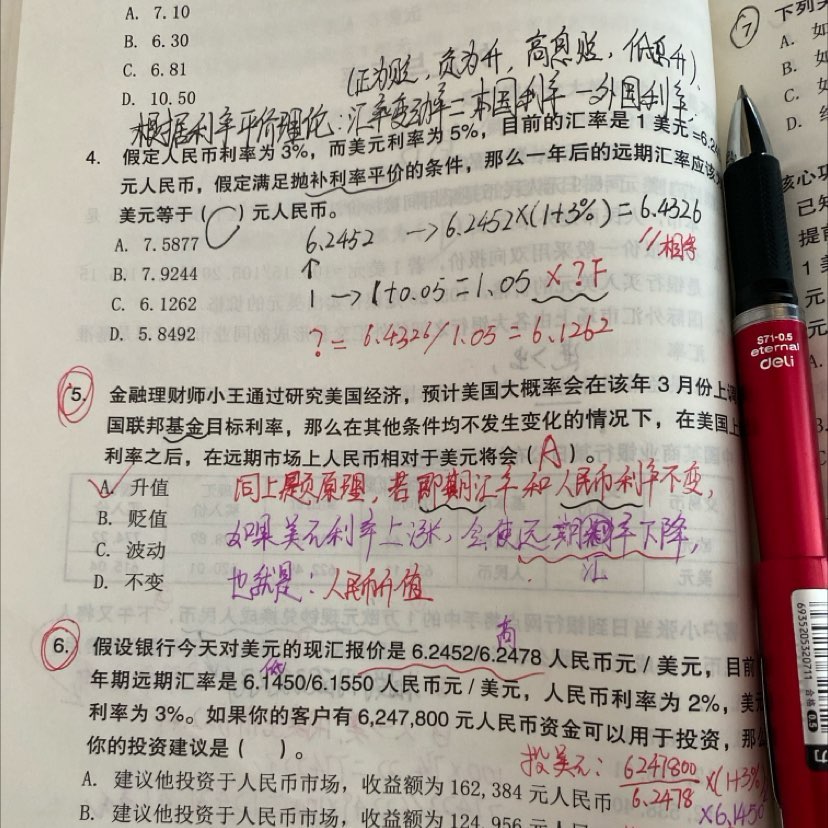 A. 7.10
B. 6.30
C. 6.81
D. 10.50
(正为贬,负为升,高息贬,低息升)
根据利率平价理论:汇率变动率=本国利率-外国利率
4. 假定人民币利率为 3%,而美元利率为 5%,目前的汇率是 1 美元=6.2
元人民币,假定满足抛补利率平价的条件,那么一年后的远期汇率应该
美元等于( )元人民币。
A. 7.5877
B. 7.9244
C. 6.1262
D. 5.8492
6.2452 → 6.2452×(1+3%) = 6.4326
↑
// 相等
1 → 1+0.05 = 1.05 × ? F
? = 6.4326/1.05 = 6.1262
5. 金融理财师小王通过研究美国经济,预计美国大概率会在该年 3 月份上调
国联邦基金目标利率,那么在其他条件均不发生变化的情况下,在美国上
利率之后,在远期市场上人民币相对于美元将会(A)。
A. 升值
B. 贬值
C. 波动
D. 不变
同上题原理,若即期汇率和人民币利率不变,
如果美元利率上涨,会使远期汇率下降,
也就是:人民币升值
6. 假设银行今天对美元的现汇报价是 6.2452/6.2478 人民币元 / 美元,目前
高
年期远期汇率是 6.1450/6.1550 人民币元 / 美元,人民币利率为 2%,美
低
利率为 3%。如果你的客户有 6,247,800 元人民币资金可以用于投资,那么
你的投资建议是( )。
投美元: 6247800/6.2478 ×(1+3%)
×6.1450
A. 建议他投资于人民币市场,收益额为 162,384 元人民币
B. 建议他投资于人民币市场,收益额为 124,956 元人民
7
下列
A. 如
B. 如
C.
D.
核心
已知
提前
1 美
元
元
A.
S71-0.5
eternal
deli
6935205320711
合格 0.5